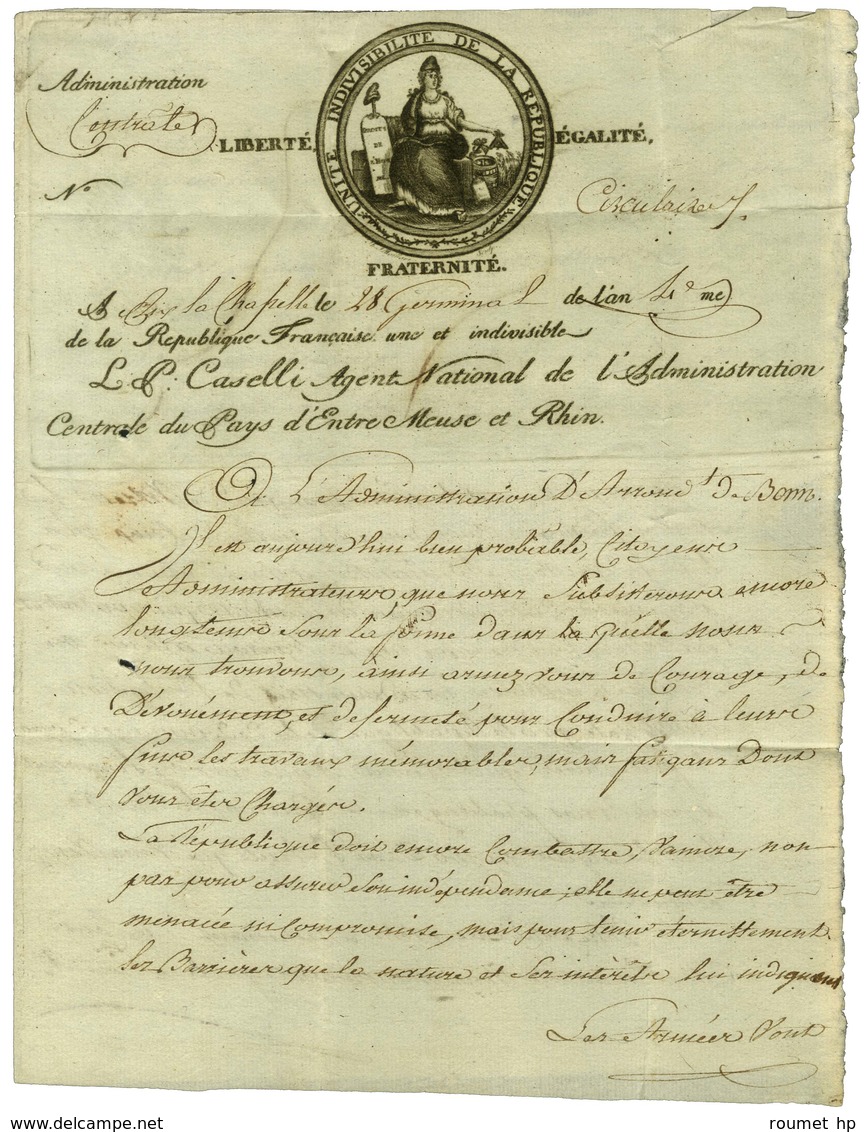 Administration
Centrale
LIBERTÉ,
UNITÉ INDIVISIBILITÉ DE LA RÉPUBLIQUE
ÉGALITÉ,
N.o
Circulaire
FRATERNITÉ.
A Aix la Chapelle le 28 Germinal de l'an 4.e me
de la République Française une et indivisible
L. P. Caselli Agent National de l'Administration
Centrale du Pays d'Entre Meuse et Rhin.
A L'Administration D'Arrond.t de Bonn.
Il est aujourd'hui bien probable, Citoyens
Administrateurs, que nous subsisterons encore
longtems sous la forme dans la quelle nous
nous trouvons, ainsi armez vous de Courage, de
Dévouément, et de fermeté pour Conduire à leurs
fins les travaux mémorables, mais fatigans Dont
Vous êtes Chargés.
La République doit encore Combattre, Vaincre, non
pas pour assurer son indépendance; elle ne peut être
menacée ni Compromise, mais pour tenir éternellement
les Barrières que la nature et ses intérêts lui indiquent
Les Armées Vont
roumet hp